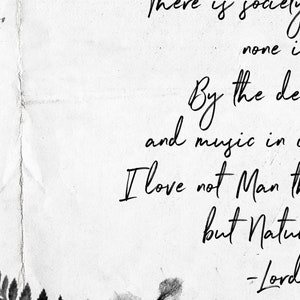 There is society
none i
By the de
and music in i
I love not Man th
but Natur
-Lord